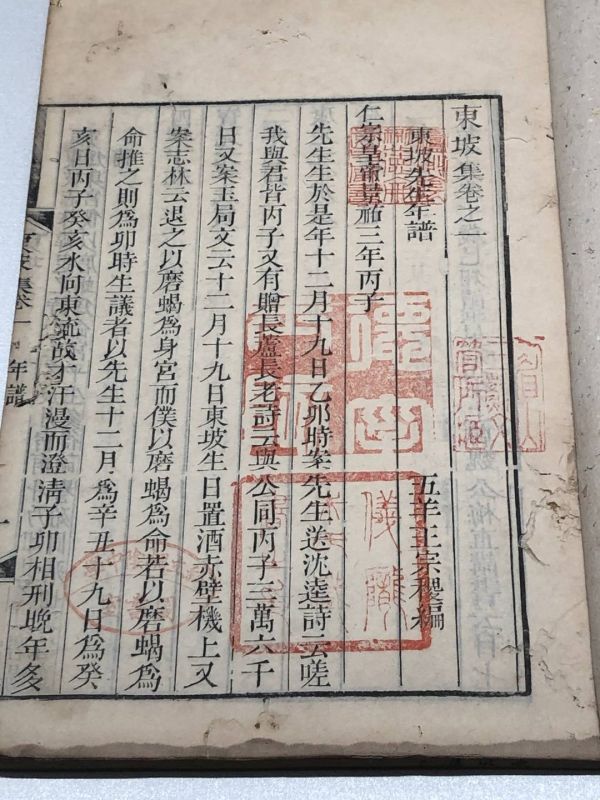 東坡集卷之一
東坡先生年譜
五羊王宗稷編
仁宗皇帝景祐三年丙子
先生生於是年十二月十九日乙卯時案先生送沈逵詩云嗟
我與君皆丙子又有贈長蘆長老詩云與公同丙子三萬六千
日又案玉局文云十二月十九日東坡生日置酒赤壁磯上又
案志林云退之以磨蝎爲身宮而僕以磨蝎爲命若以磨蝎爲
命推之則爲卯時生議者以先生十二月爲辛丑十九日爲癸
亥日丙子癸亥水向東流故才汗漫而澄清子卯相刑晚年多
年譜